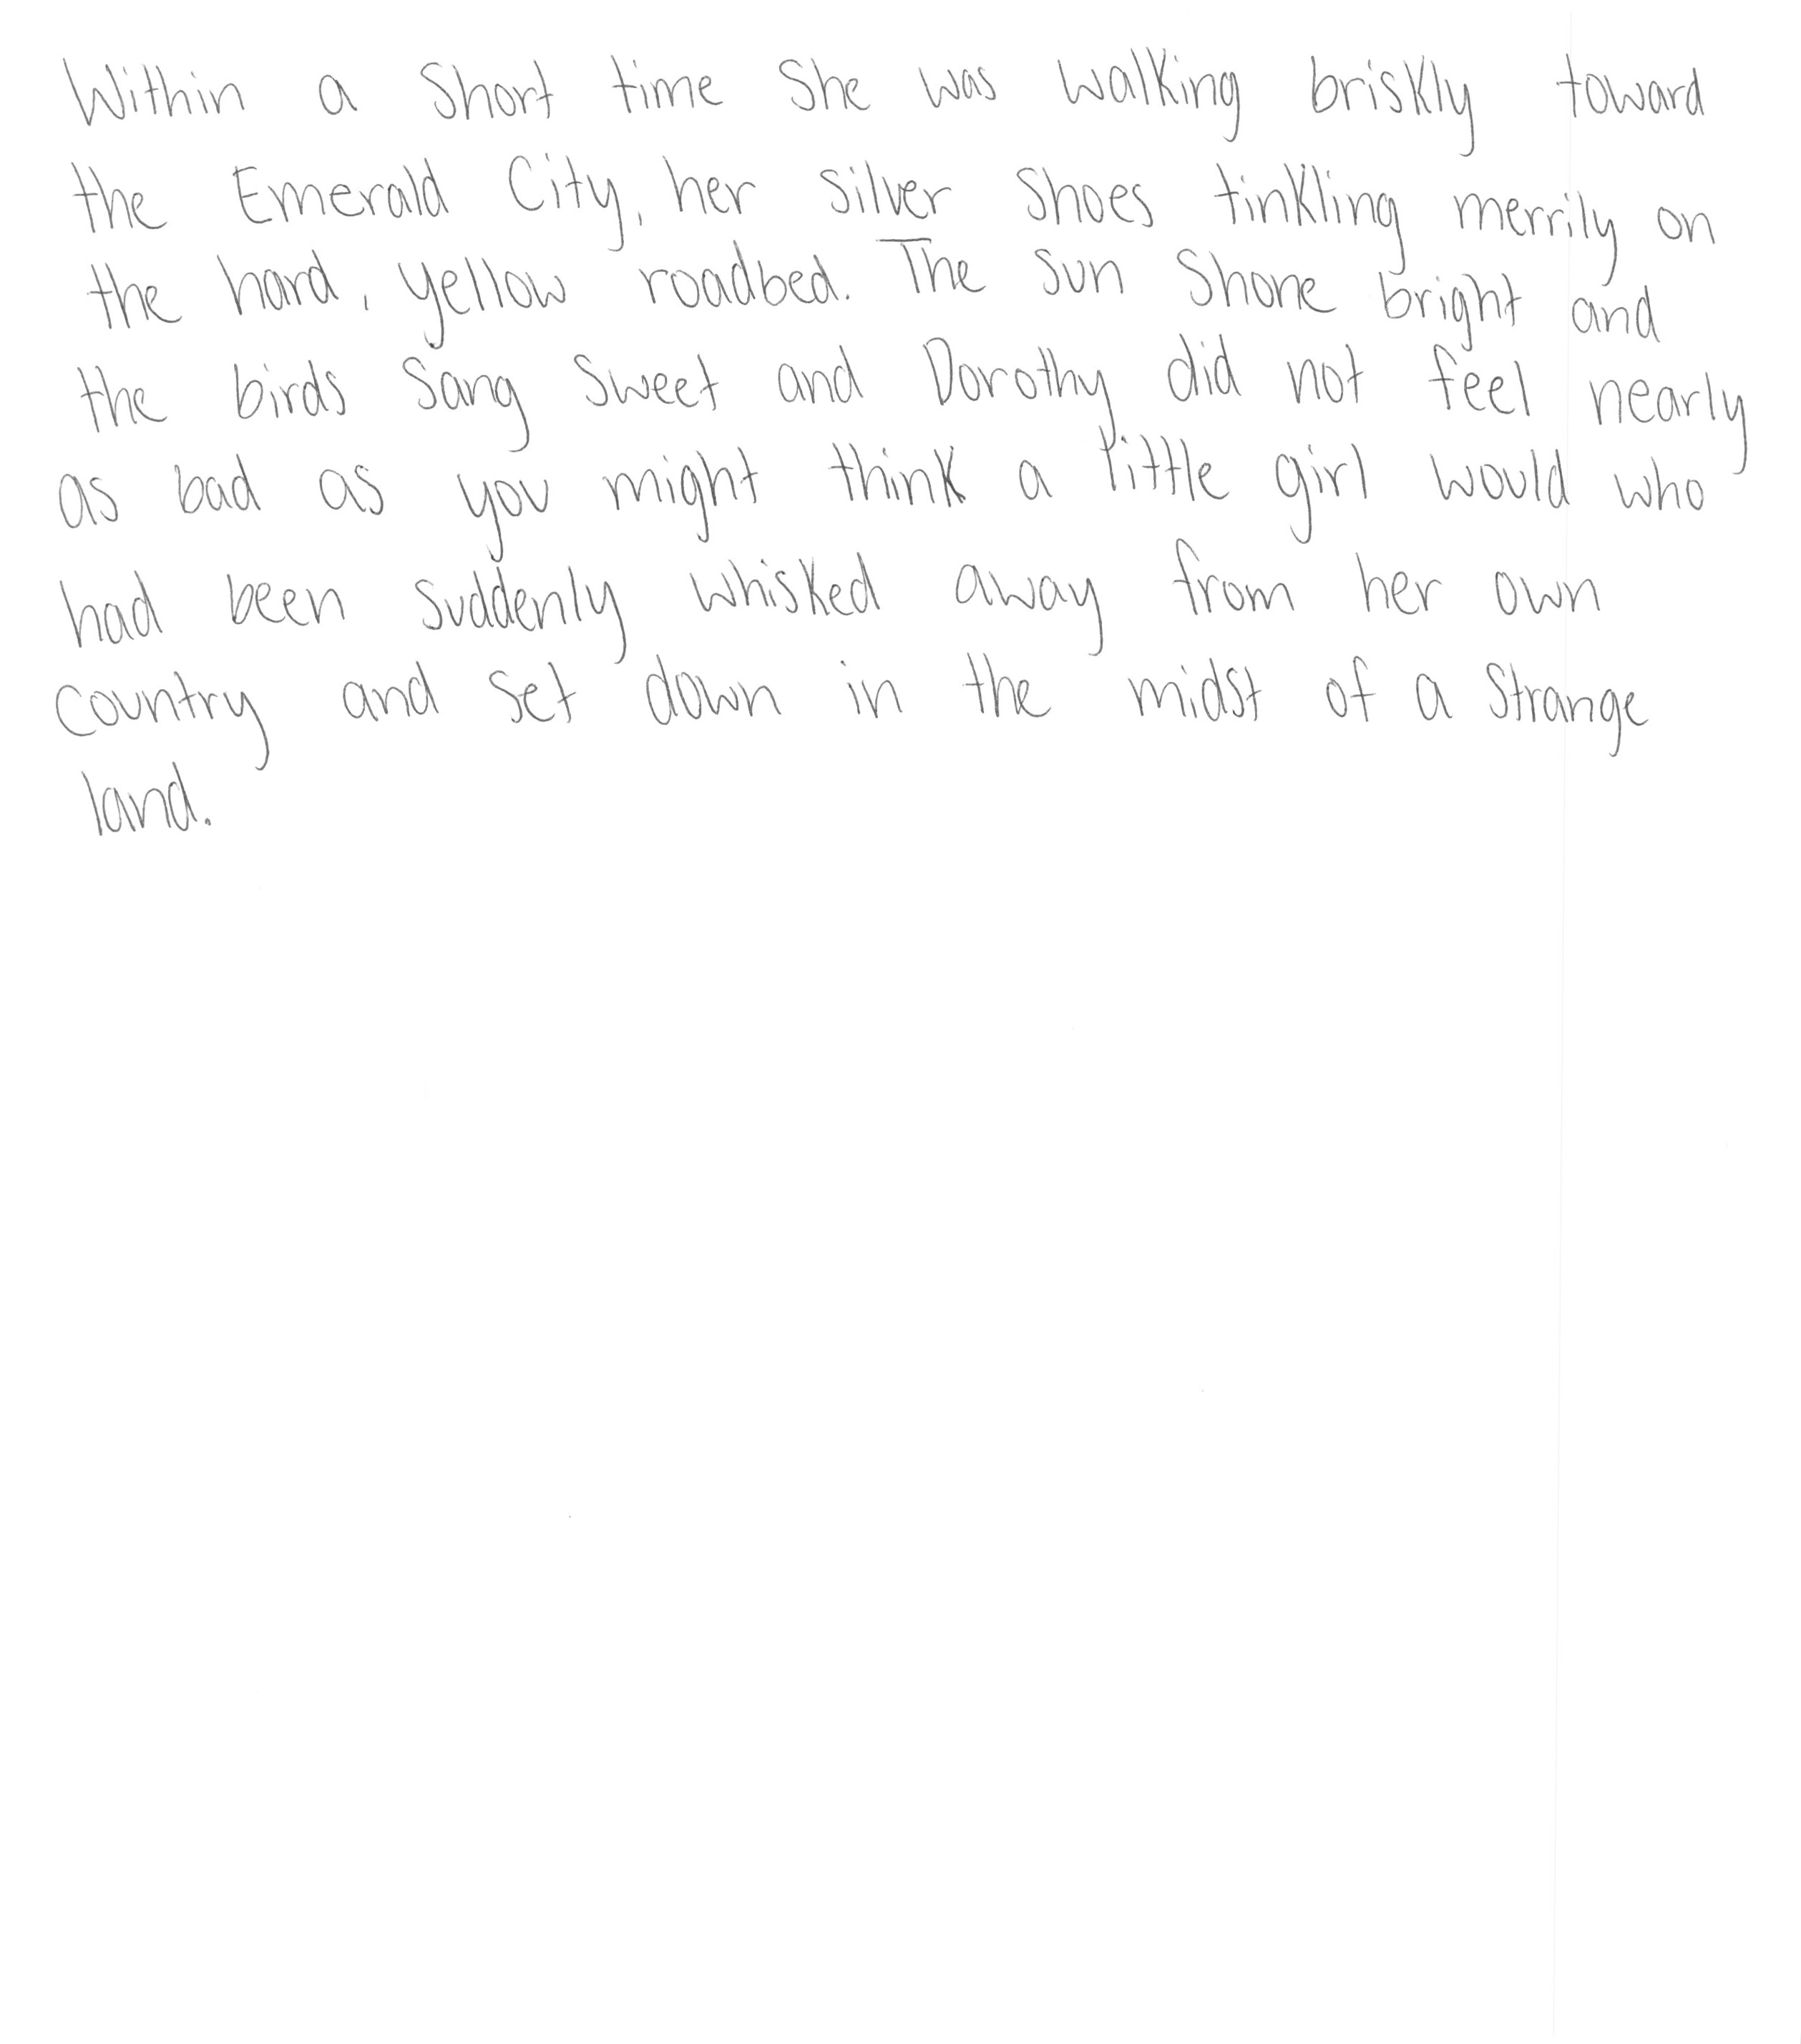 Within a short time she was walking briskly toward
the Emerald City, her silver shoes tinkling merrily on
the hard, yellow roadbed. The sun shone bright and
the birds sang sweet and Dorothy did not feel nearly
as bad as you might think a little girl would who
had been suddenly whisked away from her own
country and set down in the midst of a strange
land.